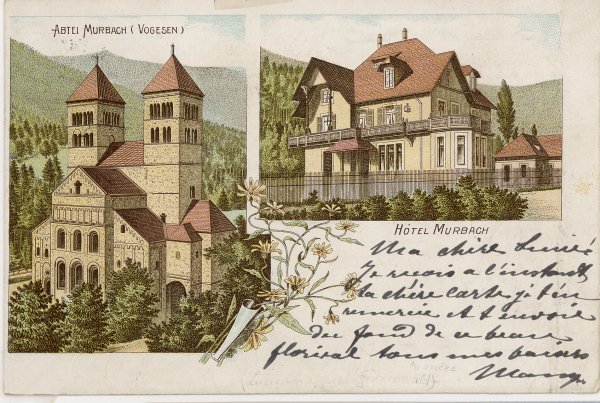 ABTEI MURBACH (VOGESEN)
HÔTEL MURBACH
Ma chère
Je reçois a l'instant
ta chère carte je t'en
remercie et t'envoie
du fond de ce beau
florival tous mes baisers